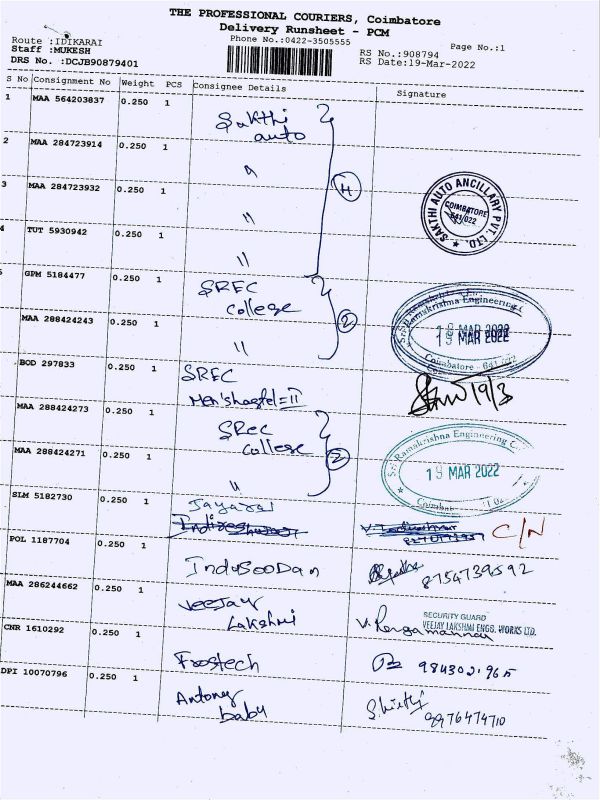 THE PROFESSIONAL COURIERS, Coimbatore
Delivery Runsheet - PCM
Phone No.:0422-3505555
Route :IDIKARAI
Staff :MUKESH
DRS No. :DCJB90879401
RS No.:908794
Page No.:1
RS Date:19-Mar-2022
S No Consignment No Weight PCS Consignee Details Signature
1 MAA 564203837 0.250 1 Sakthi auto
2 MAA 284723914 0.250 1 "
3 MAA 284723932 0.250 1 " 4
4 TUT 5930942 0.250 1 "
SAKTHI AUTO ANCILLARY PVT. LTD.
COIMBATORE
641 022
5 GPM 5184477 0.250 1 SREC College
MAA 288424243 0.250 1 " 2
Sri Ramakrishna Engineering C
19 MAR 2022
Coimbatore - 641 022
BOD 297833 0.250 1 SREC Men's hostel = II 19/3
MAA 288424273 0.250 1 SREC College
MAA 288424271 0.250 1 " 2
Sri Ramakrishna Engineering C
19 MAR 2022
Coimbatore
SLM 5182730 0.250 1 C/N
POL 1187704 0.250 1 IndusooDan 8754739592
MAA 286244662 0.250 1 Veejay Lakshmi V. Rengamannar
SECURITY GUARD
VEEJAY LAKSHMI ENGG. WORKS LTD.
CNR 1610292 0.250 1 Frostech
DPI 10070796 0.250 1 Antony baby 9976474710